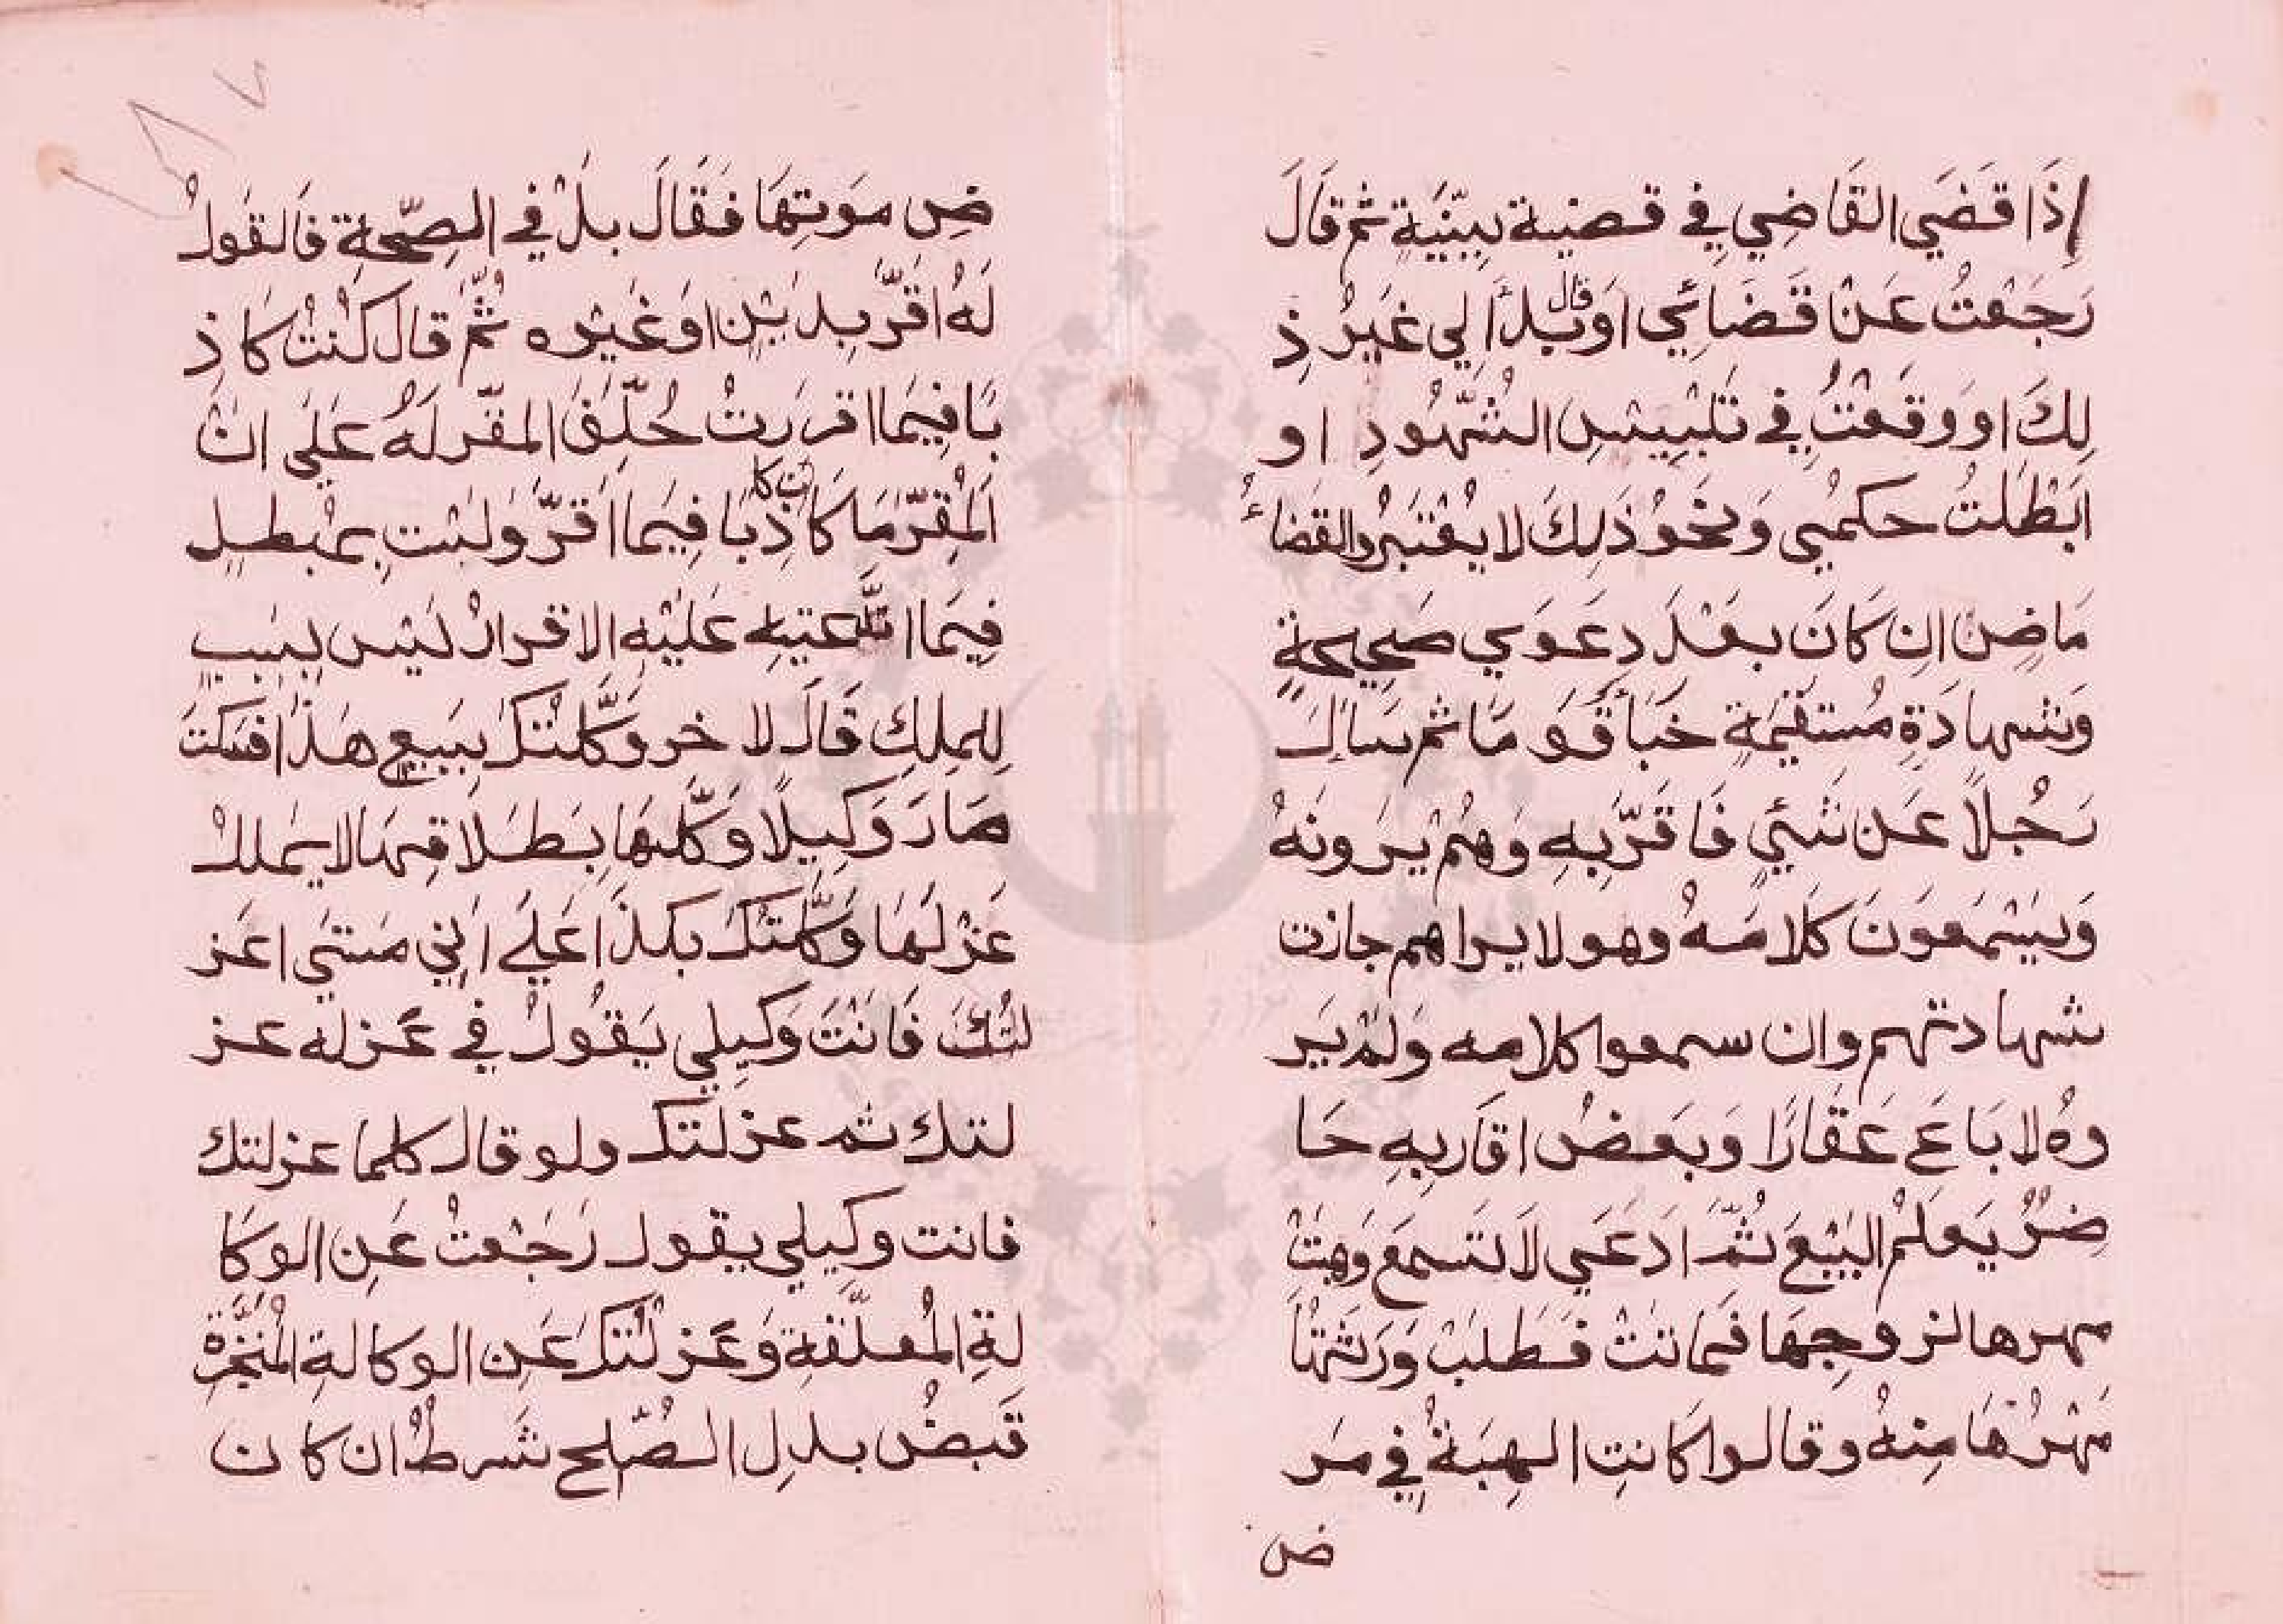 إِذَا قَضَي القَاضِي فِي قضية بِبَيِّنَةٍ ثم قَالَ
رَجَعْتُ عَنْ قَضَائِي اَوْ قال بَدَأَ لِي غَيرُ ذ
لِكَ او وَقَعْتُ فِي تَلْبِيْسِ الشُّهُودِ او
اَبْطَلْتُ حكمْيِ وَنَحْوُ ذَلِكَ لا يُعْتَبَرُ والقضاءُ
مَاضٍ اِن كَانَ بَعْدَ دِعَوَي صَحِيحَةٍ
وَشهادَةٍ مُستقيْمَةٍ خَبَأَ قَوما ثم سَاَلَ
رَجُلاً عَن شَئٍي فَاقَرَّبِهِ وَهُمْ يَرَونَهُ
وَيَسْمَعَونَ كَلَامَهُ وهو لا يراهم جازت
شهادتهم وان سمعوا كلامه وَلَمْ يَر
وهُ لا بَاعَ عَقَارًا وَبَعَضُ اقَاربِهِ حَا
ضرٌ يَعلَمُ البَيْعَ ثُمَّ ادَعَي لَا تَسمَعَ وَهبَتْ
مهرها لزوجِهَا فَمَاتَتْ فَطَلَبَتْ وَرَثَتُهَا
مَهْرَهَا مِنهُ وقالوا كانتِ الهِبَةُ فِي مَر
ض
ضِ مَوتِهَا فَقَالَ بَلْ فِي الصِّحَةِ فَالقَولُ
لَهُ اقَرَّ بِدَيْنٍ اوَ غَيْرِه ثُمَّ قالَ كُنْتُ كَاذِ
بَا فِيمَا اقررتُ حُلِّفَ المقَّرلَهُ عَلَي انَ
اَلْمُقِرَّ مَا كان كَاذِبَا فِيَما اَقَرَّ وَلَسْت بِمُبْطِلٍ
فِيَما تدَّعيهِ عَلَيْهِ الاقرارُ لَيْسَ بِسَببٍ
لِلمِلِكِ قَالَ لاخر وَكَّلْتُكَ بِبَيعِ هَذَا فسَكَتَ
صَارَ وَكِيلًا وَكَّلَهَا بِطَلَاقِهَا لا يَملكُ
عَزْلَهَا وَكَّلتُكَ بكذَا عَلَي اَنِي مَتَيَ اعَز
لتُكَ فَانَتَ وَكيِلي يَقُولُ فِي عَزله عز
لتك ثم عزلتك ولو قال كلما عزلتك
فانت وكِيلي يقول رَجَعْتُ عَنِ الوكَا
لةِ المُعلَّقةِ وَعَزلْتُكَ عَنِ الوكالةِ المُنَجَّزةِ
قَبَضُ بدلِ الصُّلحِ شَرطٌ ان كان